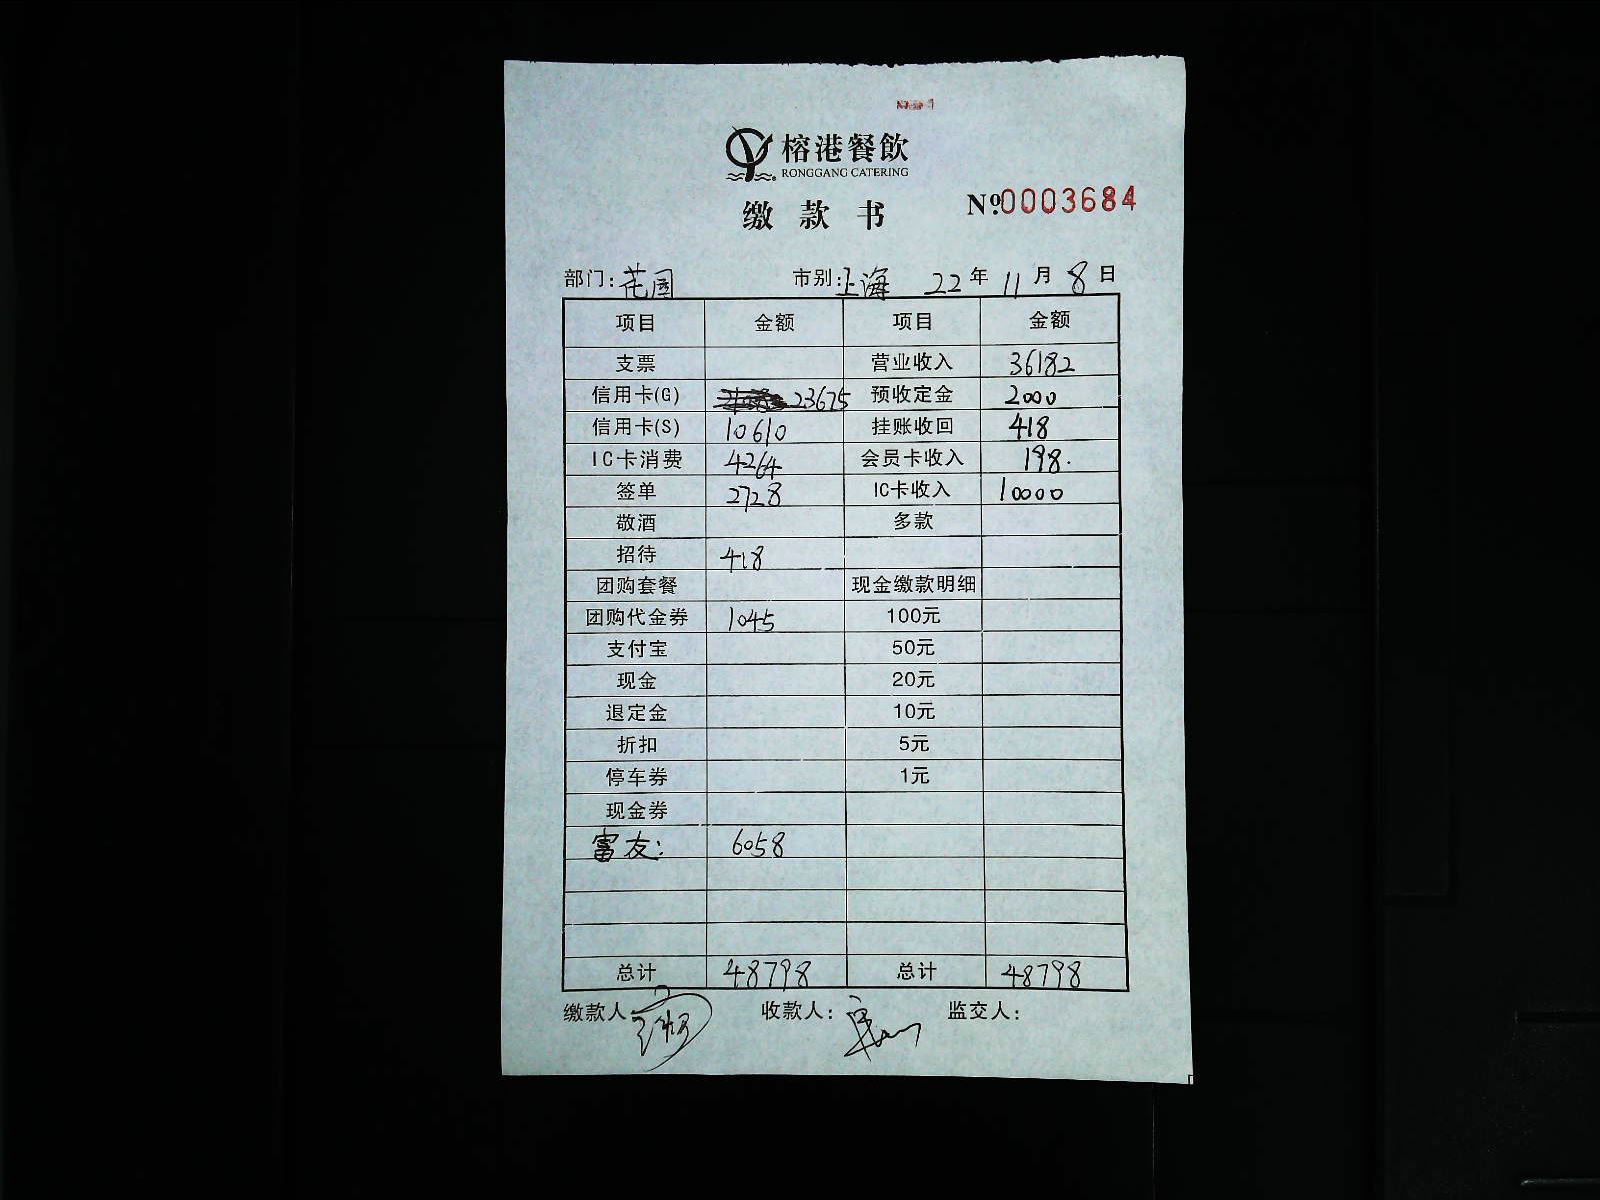 榕港餐飲
RONGGANG CATERING
缴款书 Nº.0003684
部门:花园 市别:上海 22年11月8日
项目 金额 项目 金额
支票 营业收入 36182
信用卡(G) 23675 预收定金 2000
信用卡(S) 10610 挂账收回 418
IC卡消费 4264 会员卡收入 198.
签单 2728 IC卡收入 10000
敬酒 多款
招待 418
团购套餐 现金缴款明细
团购代金券 1045 100元
支付宝 50元
现金 20元
退定金 10元
折扣 5元
停车券 1元
现金券
富友: 6058
总计 48798 总计 48798
缴款人 收款人: 监交人: